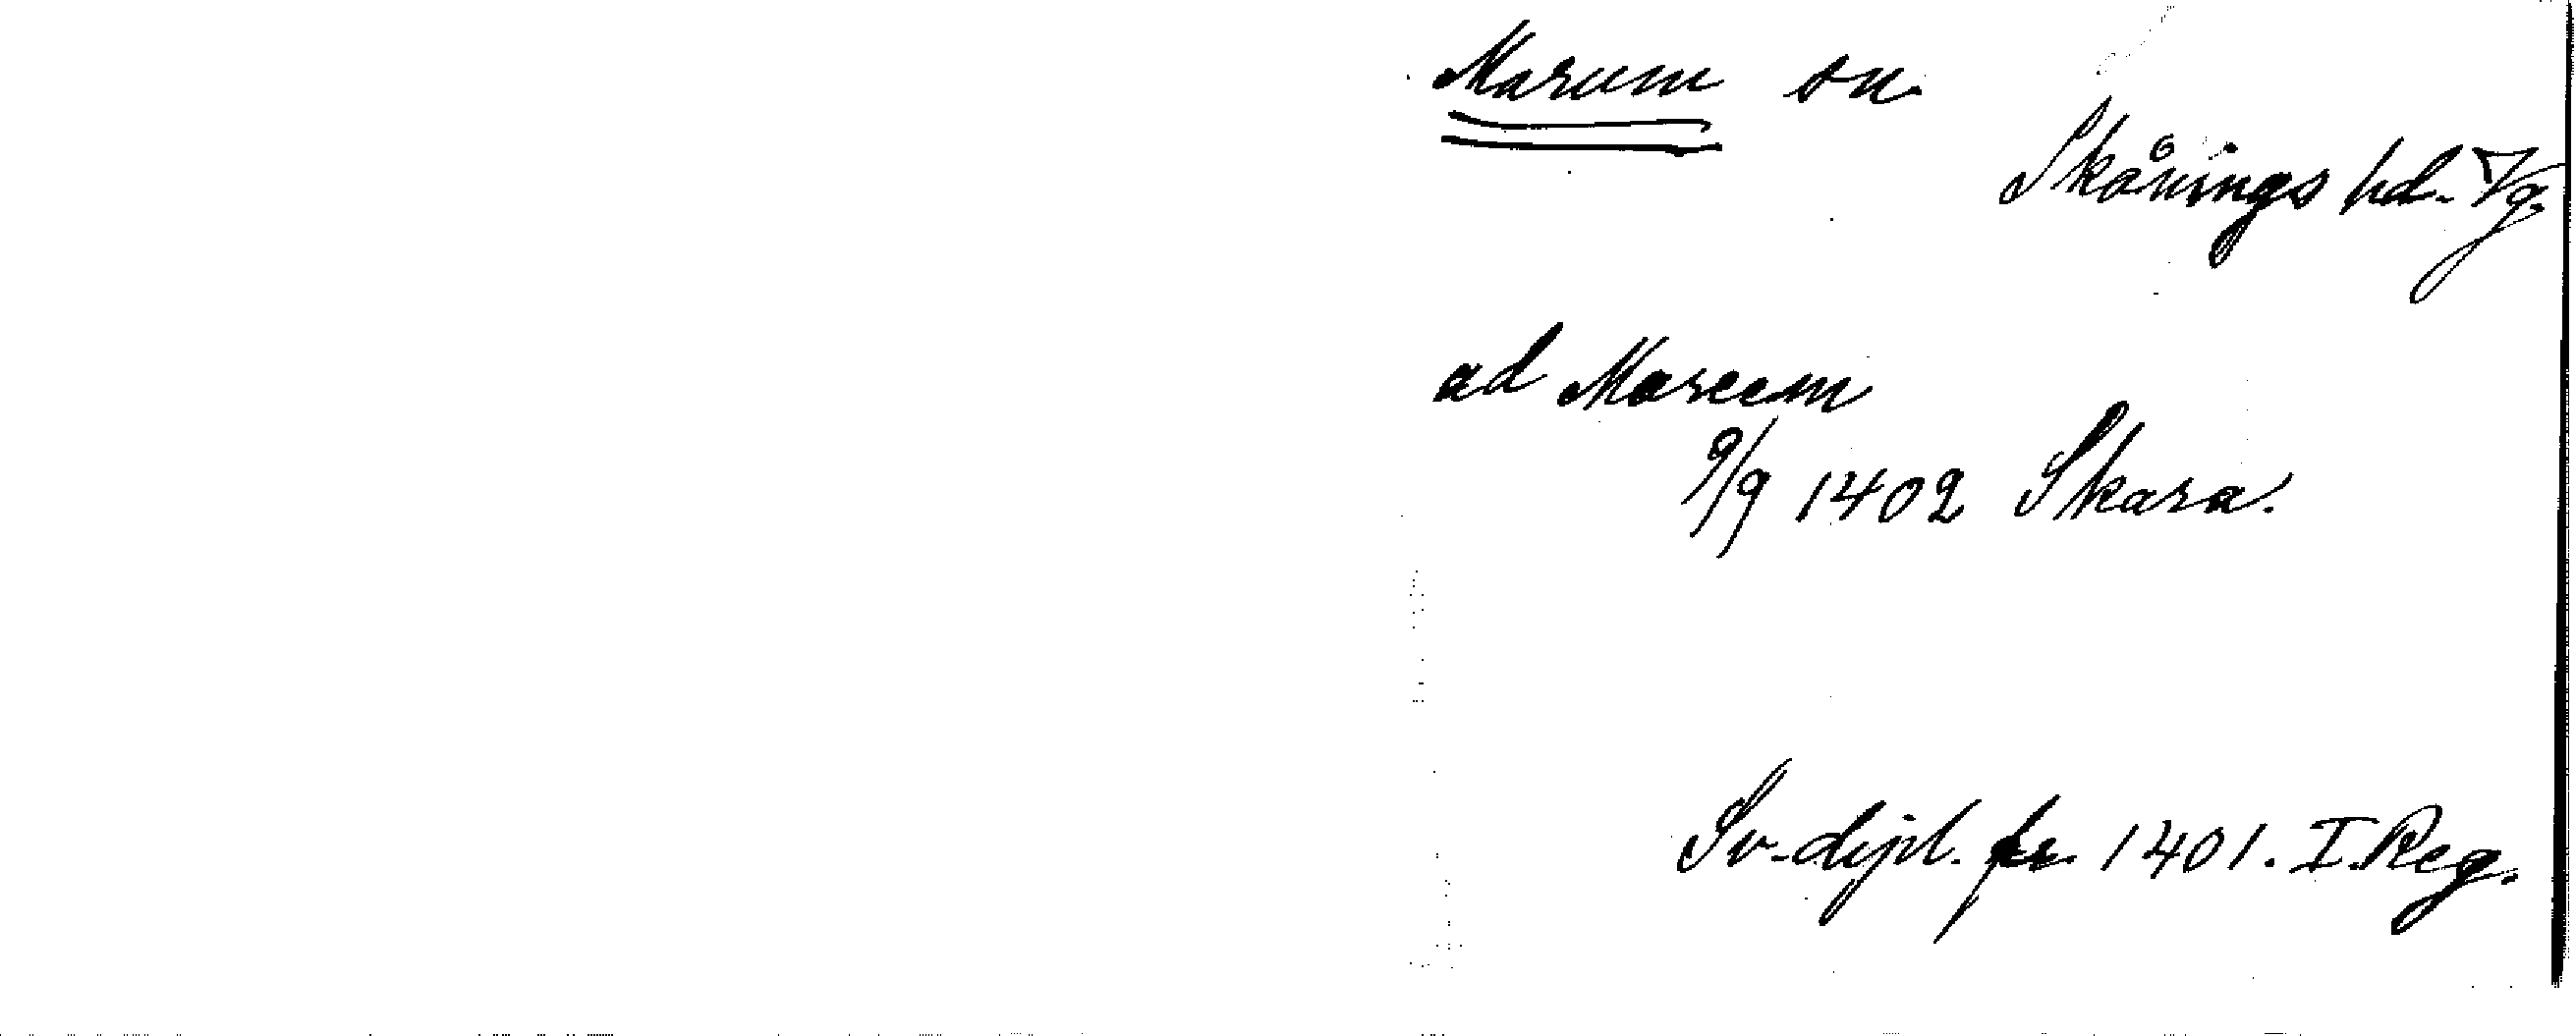 Marum sn.
Skånings hd. Vg.
ad Marum
9/9 1402 Skara.
Sv. dipl. fr. 1401. I. Reg.